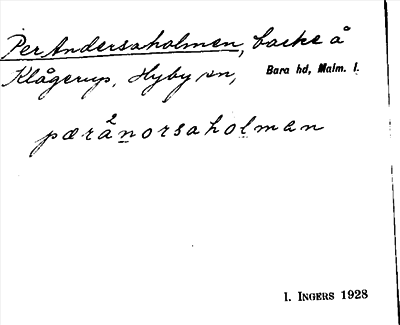 Per Andersaholmen, backe å
Klågerup, Hyby sn, Bara hd, Malm. l.
pæra2norsaholman
I. INGERS 1928